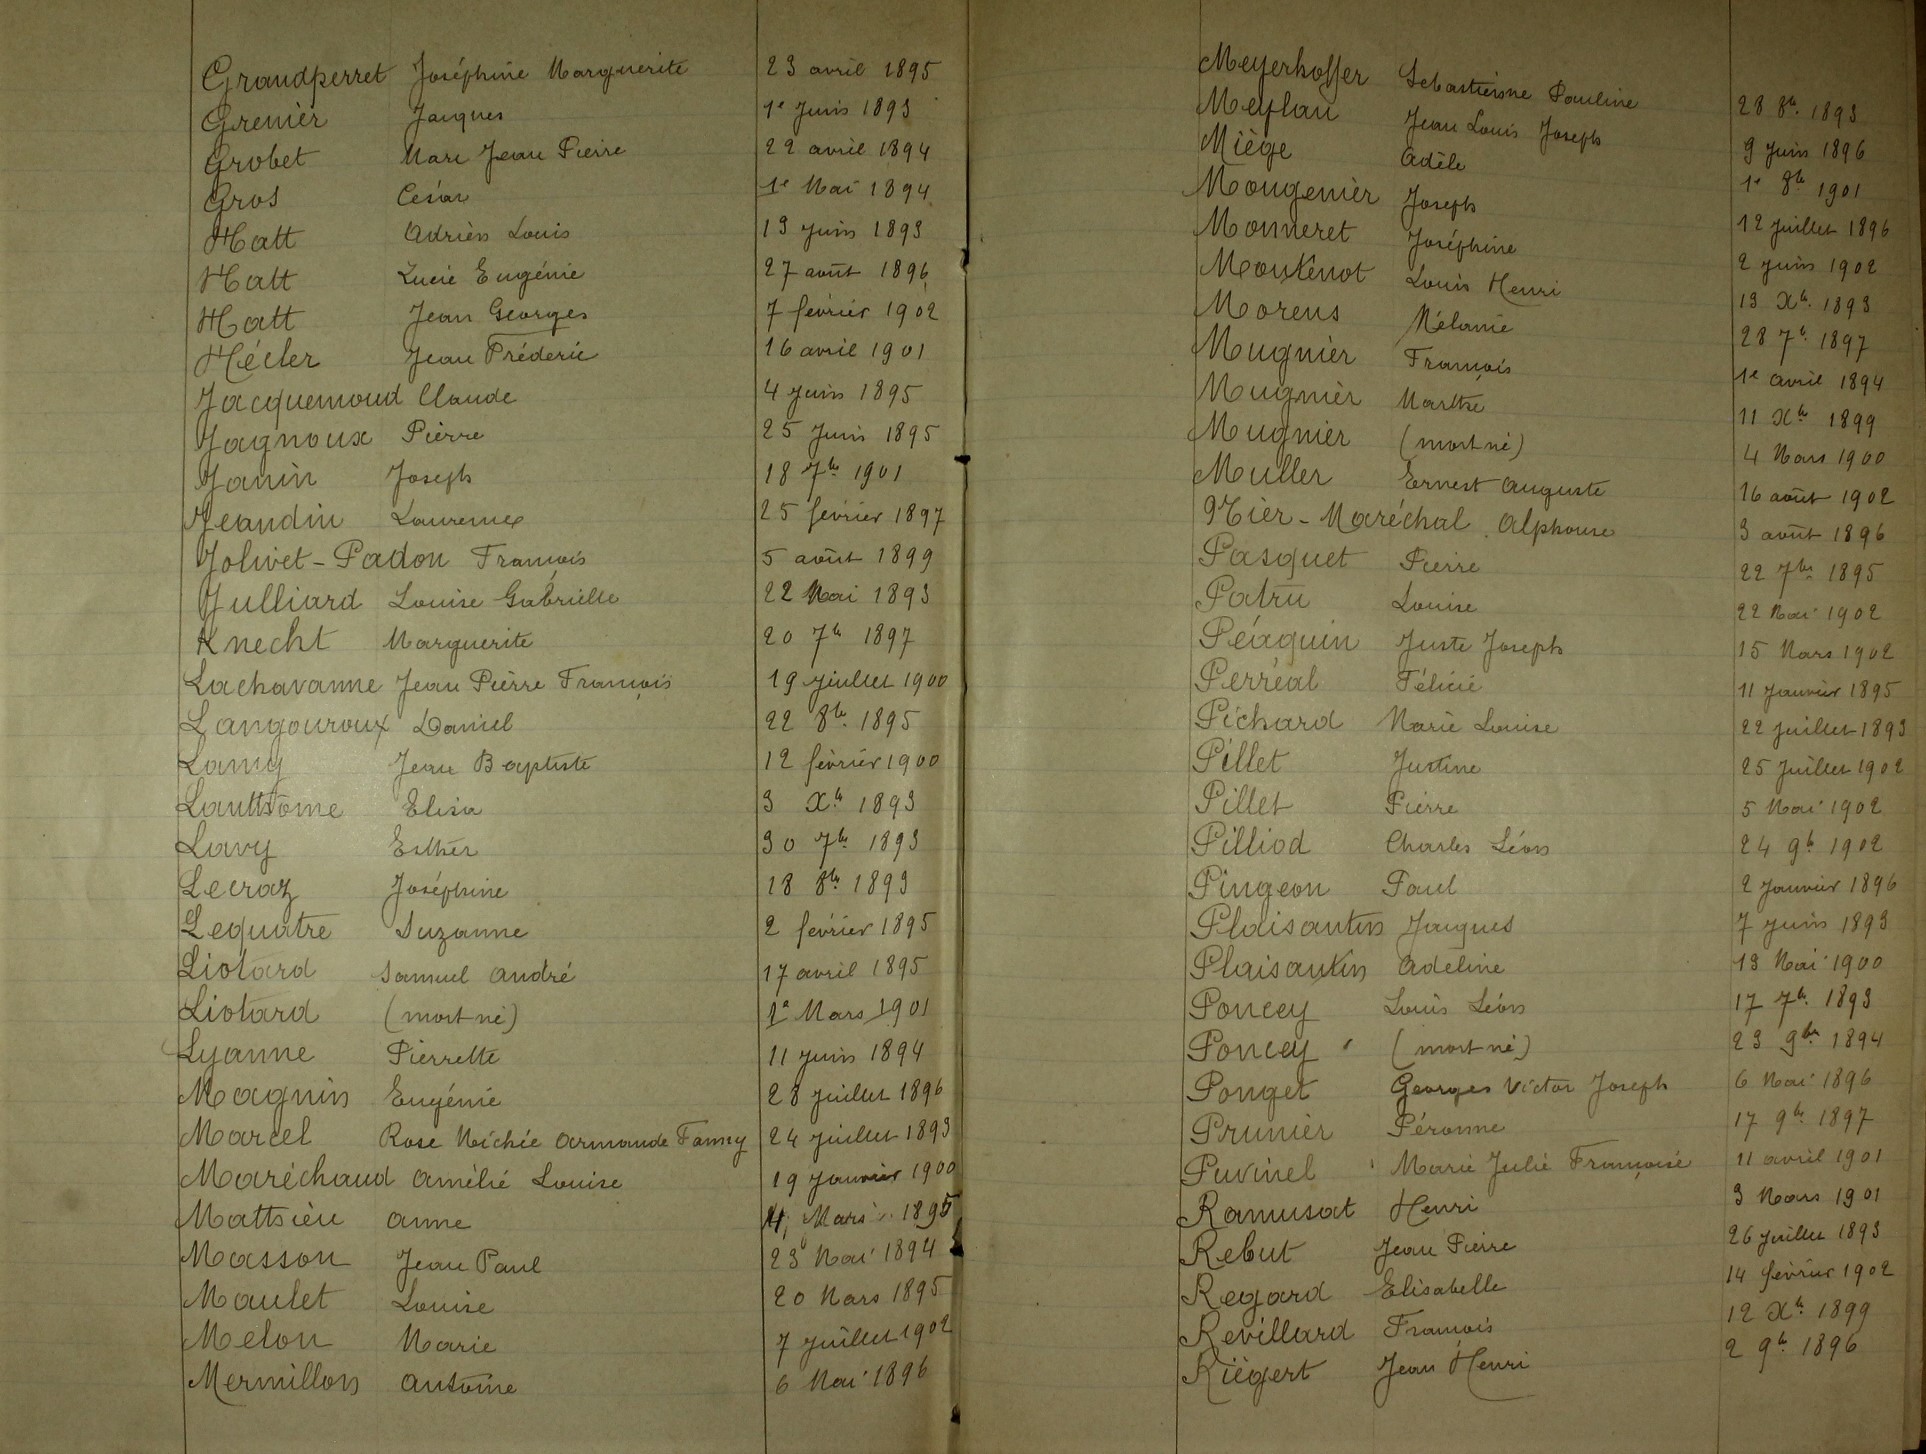 Grandperret Joséphine Marguerite 23 avril 1895
Grenier Jacques 1e Juin 1893
Grobet Marc Jean Pierre 22 avril 1894
Gros César 1e Mai 1894
Hatt Adrien Louis 13 juin 1893
Hatt Lucie Eugénie 27 août 1896
Hatt Jean Georges 7 février 1902
Hécler Jean Fréderic 16 avril 1901
Jacquemoud Claude 4 juin 1895
Jagnoux Pierre 25 Juin 1895
Janin Joseph 18 7bre 1901
Jeandin Laurence 25 février 1897
Jolivet-Padon François 5 août 1899
Julliard Louise Gabrielle 22 Mai 1893
Knecht Marguerite 20 7bre 1897
Lachavanne Jean Pierre François 19 juillet 1900
Langouroux Daniel 22 8bre 1895
Lamy Jean Baptiste 12 février 1900
Elisa 3 Xbre 1893
Lavy Esther 30 7bre 1893
Lecraz Joséphine 18 8bre 1893
Lequatre Suzanne 2 février 1895
Liotard Samuel André 17 avril 1895
Liotard (mort né) 1e Mars 1901
Lyanne Pierrette 11 juin 1894
Magnin Eugénie 28 juillet 1896
Marcel Rose Michée Armande Fanny 24 juillet 1893
Maréchaud Amélie Louise 19 janvier 1900
Matthieu Anne Mars 1895
Masson Jean Paul 23 Mai 1894
Maulet Louise 20 Mars 1895
Melon Marie 7 juillet 1902
Mermillon Antoine 6 Mai 1896
Meyerhoffer Sébastienne Pauline 28 8bre 1893
Meylan Jean Louis Joseph 9 juin 1896
Miège Adèle 1e 8bre 1901
Mongenier Joseph 12 juillet 1896
Monneret Joséphine 2 juin 1902
Montenot Louis Henri 13 Xbre 1893
Morens Mélanie 28 7bre 1897
Mugnier François 1e avril 1894
Mugnier Marthe 11 Xbre 1899
Mugnier (mort né) 4 Mars 1900
Muller Ernest Auguste 16 août 1902
Nier-Maréchal Alphonse 3 août 1896
Pasquet Pierre 22 7bre 1895
Patru Louise 22 Mai 1902
Péaquin Juste Joseph 15 Mars 1902
Perréal Félicie 11 janvier 1895
Pichard Marie Louise 22 juillet 1893
Pillet Justine 25 juillet 1902
Pillet Pierre 5 Mai 1902
Pilliod Charles Léon 24 9bre 1902
Pingeon Paul 2 janvier 1896
Plaisantin Jacques 7 juin 1893
Plaisantin Adeline 13 Mai 1900
Poncey Louis Léon 17 7bre 1893
Poncey (mort né) 23 9bre 1894
Ponget Georges Victor Joseph 6 Mai 1896
Prunier Péronne 17 9bre 1897
Puvinel Marie Julie Françoise 11 avril 1901
Ramusat Henri 3 Mars 1901
Rebut Jean Pierre 26 juillet 1893
Regard Elisabelle 14 février 1902
Revillard François 12 Xbre 1899
Riègert Jean Henri 2 9bre 1896